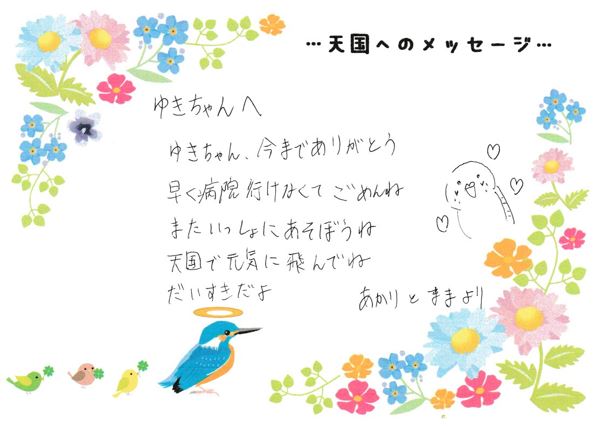 …天国へのメッセージ…
ゆきちゃんへ
ゆきちゃん、今までありがとう
早く病院行けなくてごめんね
またいっしょにあそぼうね
天国で元気に飛んでね
だいすきだよ
あかりとままより